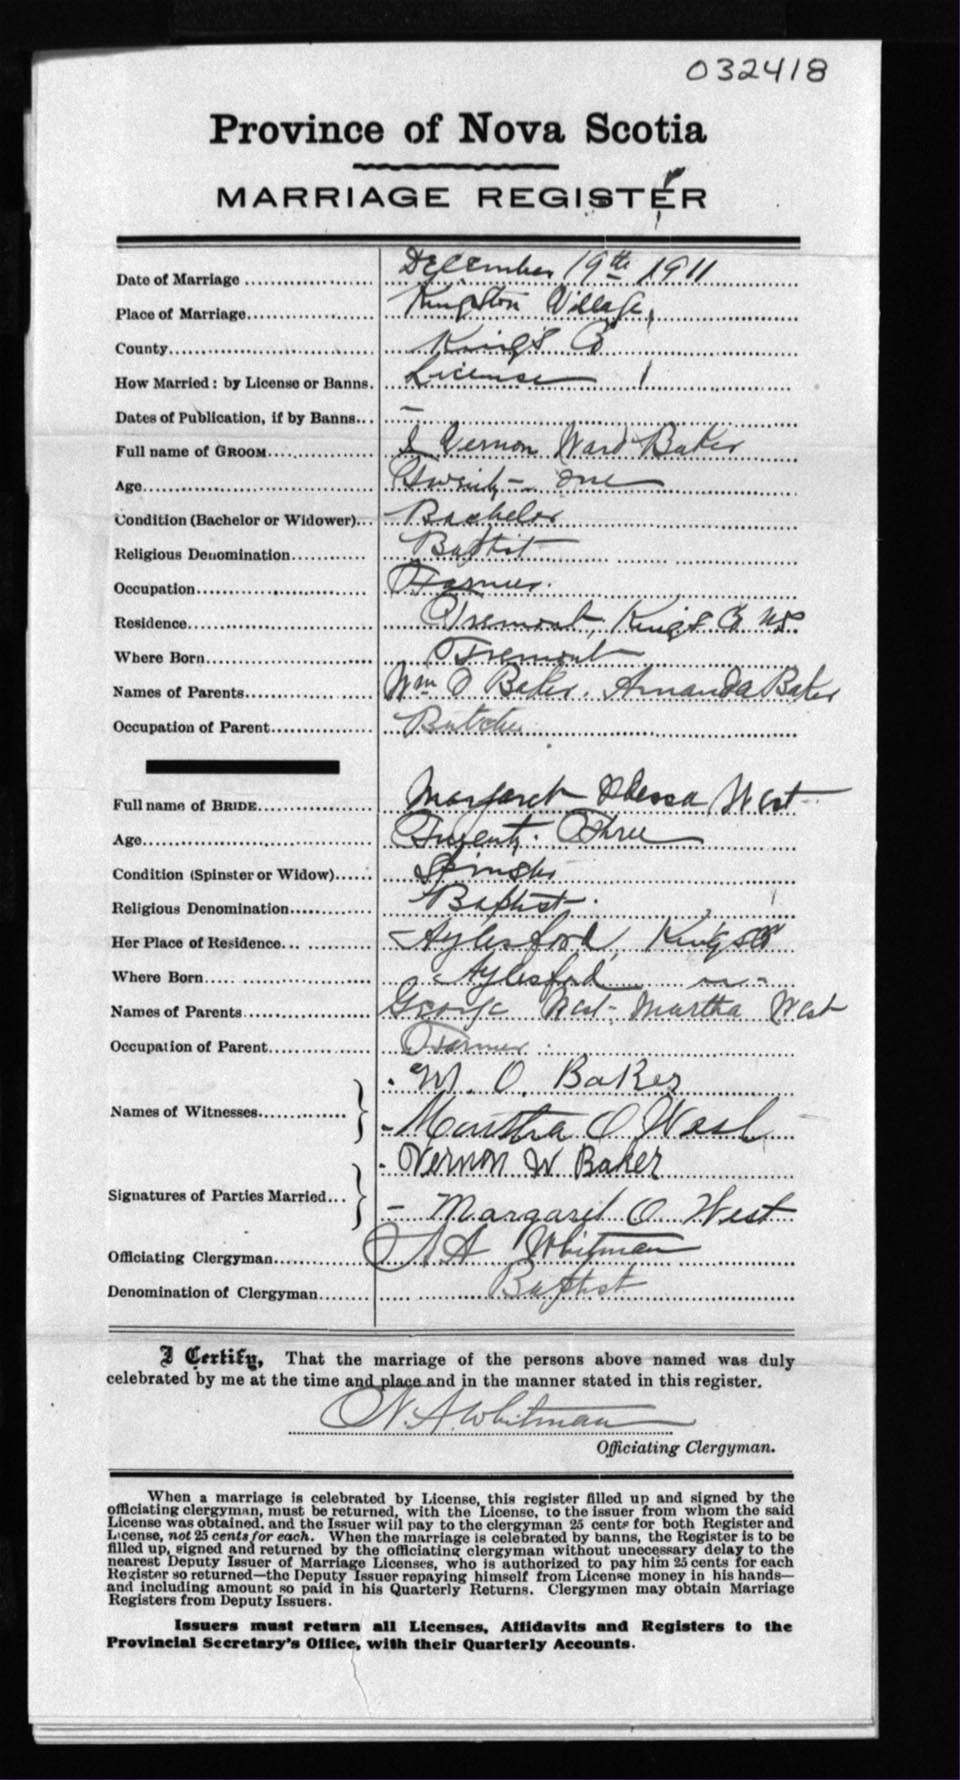 032418
Province of Nova Scotia
MARRIAGE REGISTER
Date of Marriage December 19th 1911
Place of Marriage Kingston Village,
County Kings Co
How Married: by License or Banns. License
Dates of Publication, if by Banns... –
Full name of GROOM Vernon Ward Baker
Age Twenty - one
Condition (Bachelor or Widower)... Bachelor
Religious Denomination Baptist
Occupation Farmer.
Residence Tremont, Kings Co NS.
Where Born Tremont
Names of Parents Wm O Baker. Amanda Baker
Occupation of Parent Butcher
Full name of BRIDE Margaret Odessa West
Age Twenty. Three
Condition (Spinster or Widow) Spinster
Religious Denomination Baptist.
Her Place of Residence Aylesford, Kings Co
Where Born Aylesford
Names of Parents George West - Martha West
Occupation of Parent Farmer
W. O. Baker
Names of Witnesses
Martha O West
Vernon W Baker
Signatures of Parties Married...
Margaret O. West
Officiating Clergyman A Whitman
Denomination of Clergyman Baptist
I Certify, That the marriage of the persons above named was duly
celebrated by me at the time and place and in the manner stated in this register.
A. Whitman
Officiating Clergyman.
When a marriage is celebrated by License, this register filled up and signed by the
officiating clergyman, must be returned, with the License, to the issuer from whom the said
License was obtained, and the Issuer will pay to the clergyman 25 cents for both Register and
License, not 25 cents for each. When the marriage is celebrated by banns, the Register is to be
filled up, signed and returned by the officiating clergyman without unecessary delay to the
nearest Deputy Issuer of Marriage Licenses, who is authorized to pay him 25 cents for each
Register so returned—the Deputy Issuer repaying himself from License money in his hands—
and including amount so paid in his Quarterly Returns. Clergymen may obtain Marriage
Registers from Deputy Issuers.
Issuers must return all Licenses, Affidavits and Registers to the
Provincial Secretary's Office, with their Quarterly Accounts.